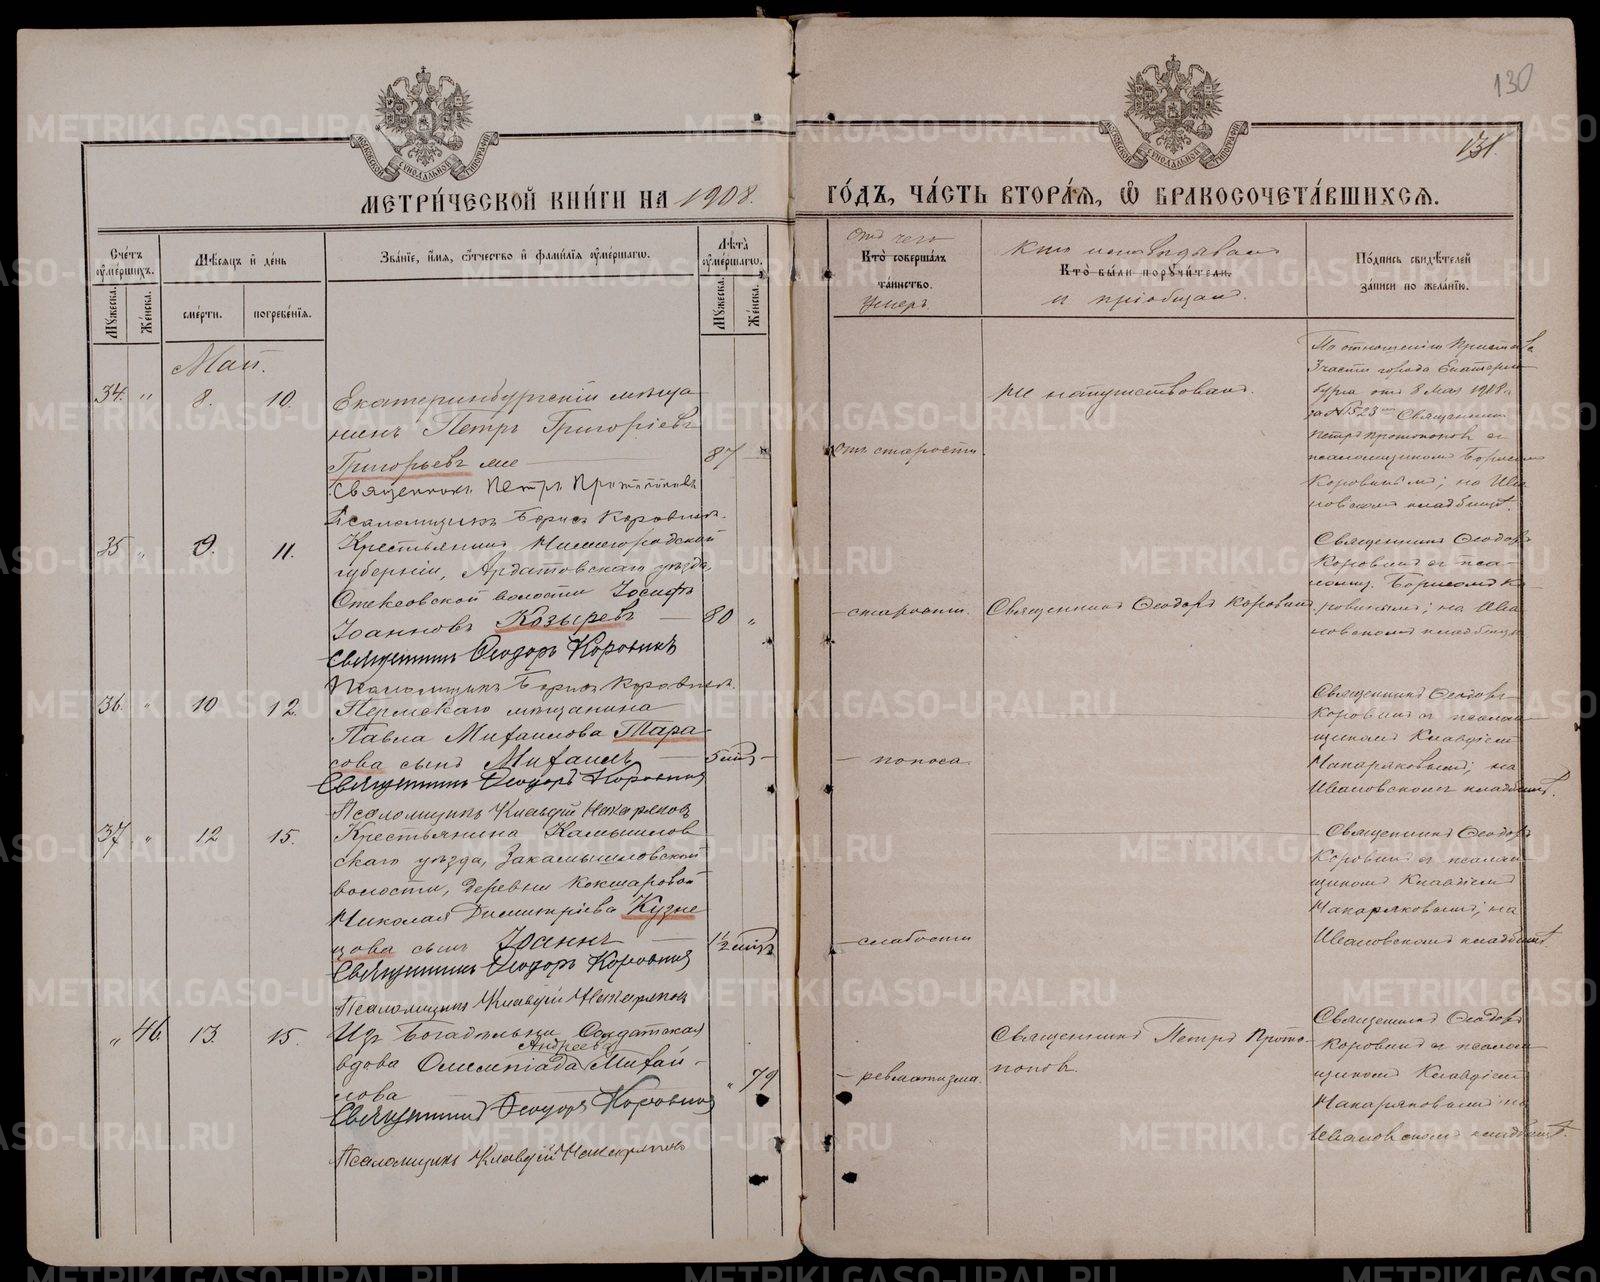 130
131.
МЕТРИ́ЧЕСКОЙ КНИ́ГИ НА 1908. ГО́ДЪ, ЧА́СТЬ ВТОРА́Я, Ѡ БРАКОСОЧЕТА́ВШИХСЯ.
Сче́тъ ᲂумерших.
Мужеска.
Же́нска.
Мѣсяцъ и день
сме́рти.
погребе́нїя.
Зва́нїе, и́мя, о́тчество и фами́лїя ᲂуме́ршагѡ.
Лѣта ᲂуме́ршагѡ.
Мужеска.
Же́нска.
Отъ чего
Кто̀ соверша́лъ
та́инство.
умеръ.
Кто исповѣдывалъ
Кто̀ бы́ли порꙋчи́тели.
и пріобщалъ.
По́дпись свидѣ́телей
за́писи по жела́нїю.
Май.
34. " 8. 10.
Екатеринбургскій мѣща
нинъ Петръ Григоріевъ
Григорьевъ же
87
Священникъ Петръ Протопоповъ
Псаломщикъ Борисъ Коровинъ.
Отъ старости.
Не напутствованъ.
По отношенію Пристава
части города Екатерин
бурга отъ 8 Мая 1908 г.
за № 523 Священникъ
Петръ Протопоповъ съ
псаломщикомъ Борисомъ
Коровинымъ; на Ива
новскомъ кладбищѣ.
35 " 9. 11.
Крестьянинъ Нижегородской
губерніи, Ардатовскаго уѣзда,
Стексовской волости Іосифъ
Іоанновъ Козыревъ
80 "
Священникъ Ѳеодоръ Коровинъ
Псаломщикъ Борисъ Коровинъ.
— старости.
Священникъ Ѳеодоръ Коровинъ
Священникъ Ѳеодоръ
Коровинъ съ пса-
ломщ. Борисомъ Ко
ровинымъ; на Ива
новскомъ кладбищѣ
36. " 10 12.
Пермскаго мѣщанина
Павла Михаилова Тара
сова сынъ Михаилъ
5 мѣс
Священникъ Ѳеодоръ Коровинъ
Псаломщикъ Клавдій Накаряковъ
— поноса
Священникъ Ѳеодоръ
Коровинъ съ псалом
щикомъ Клавдіемъ
Накаряковымъ; на
Ивановскомъ кладбищѣ.
37 " 12 15.
Крестьянина Камышлов
скаго уѣзда, Закамышловской
волости, деревни Кокшаровой
Николая Димитріева Кузне
цова сынъ Іоаннъ
1½ мѣс
Священникъ Ѳеодоръ Коровинъ
Псаломщикъ Клавдій Накаряковъ
— слабости
Священникъ Ѳеодоръ
Коровинъ съ псалом
щикомъ Клавдіемъ
Накаряковымъ; на
Ивановскомъ кладбищѣ.
" 46. 13. 15.
Изъ Богадѣльни Солдатская
Андреева
вдова Олимпіада Михай-
лова
" 79
Священникъ Ѳеодоръ Коровинъ
Псаломщикъ Клавдій Накаряковъ
— ревматизма.
Священникъ Петръ Прото-
поповъ.
Священникъ Ѳеодоръ
Коровинъ съ псалом
щикомъ Клавдіемъ
Накаряковымъ на
Ивановскомъ кладбищѣ.
METRIKI.GASO-URAL.RU